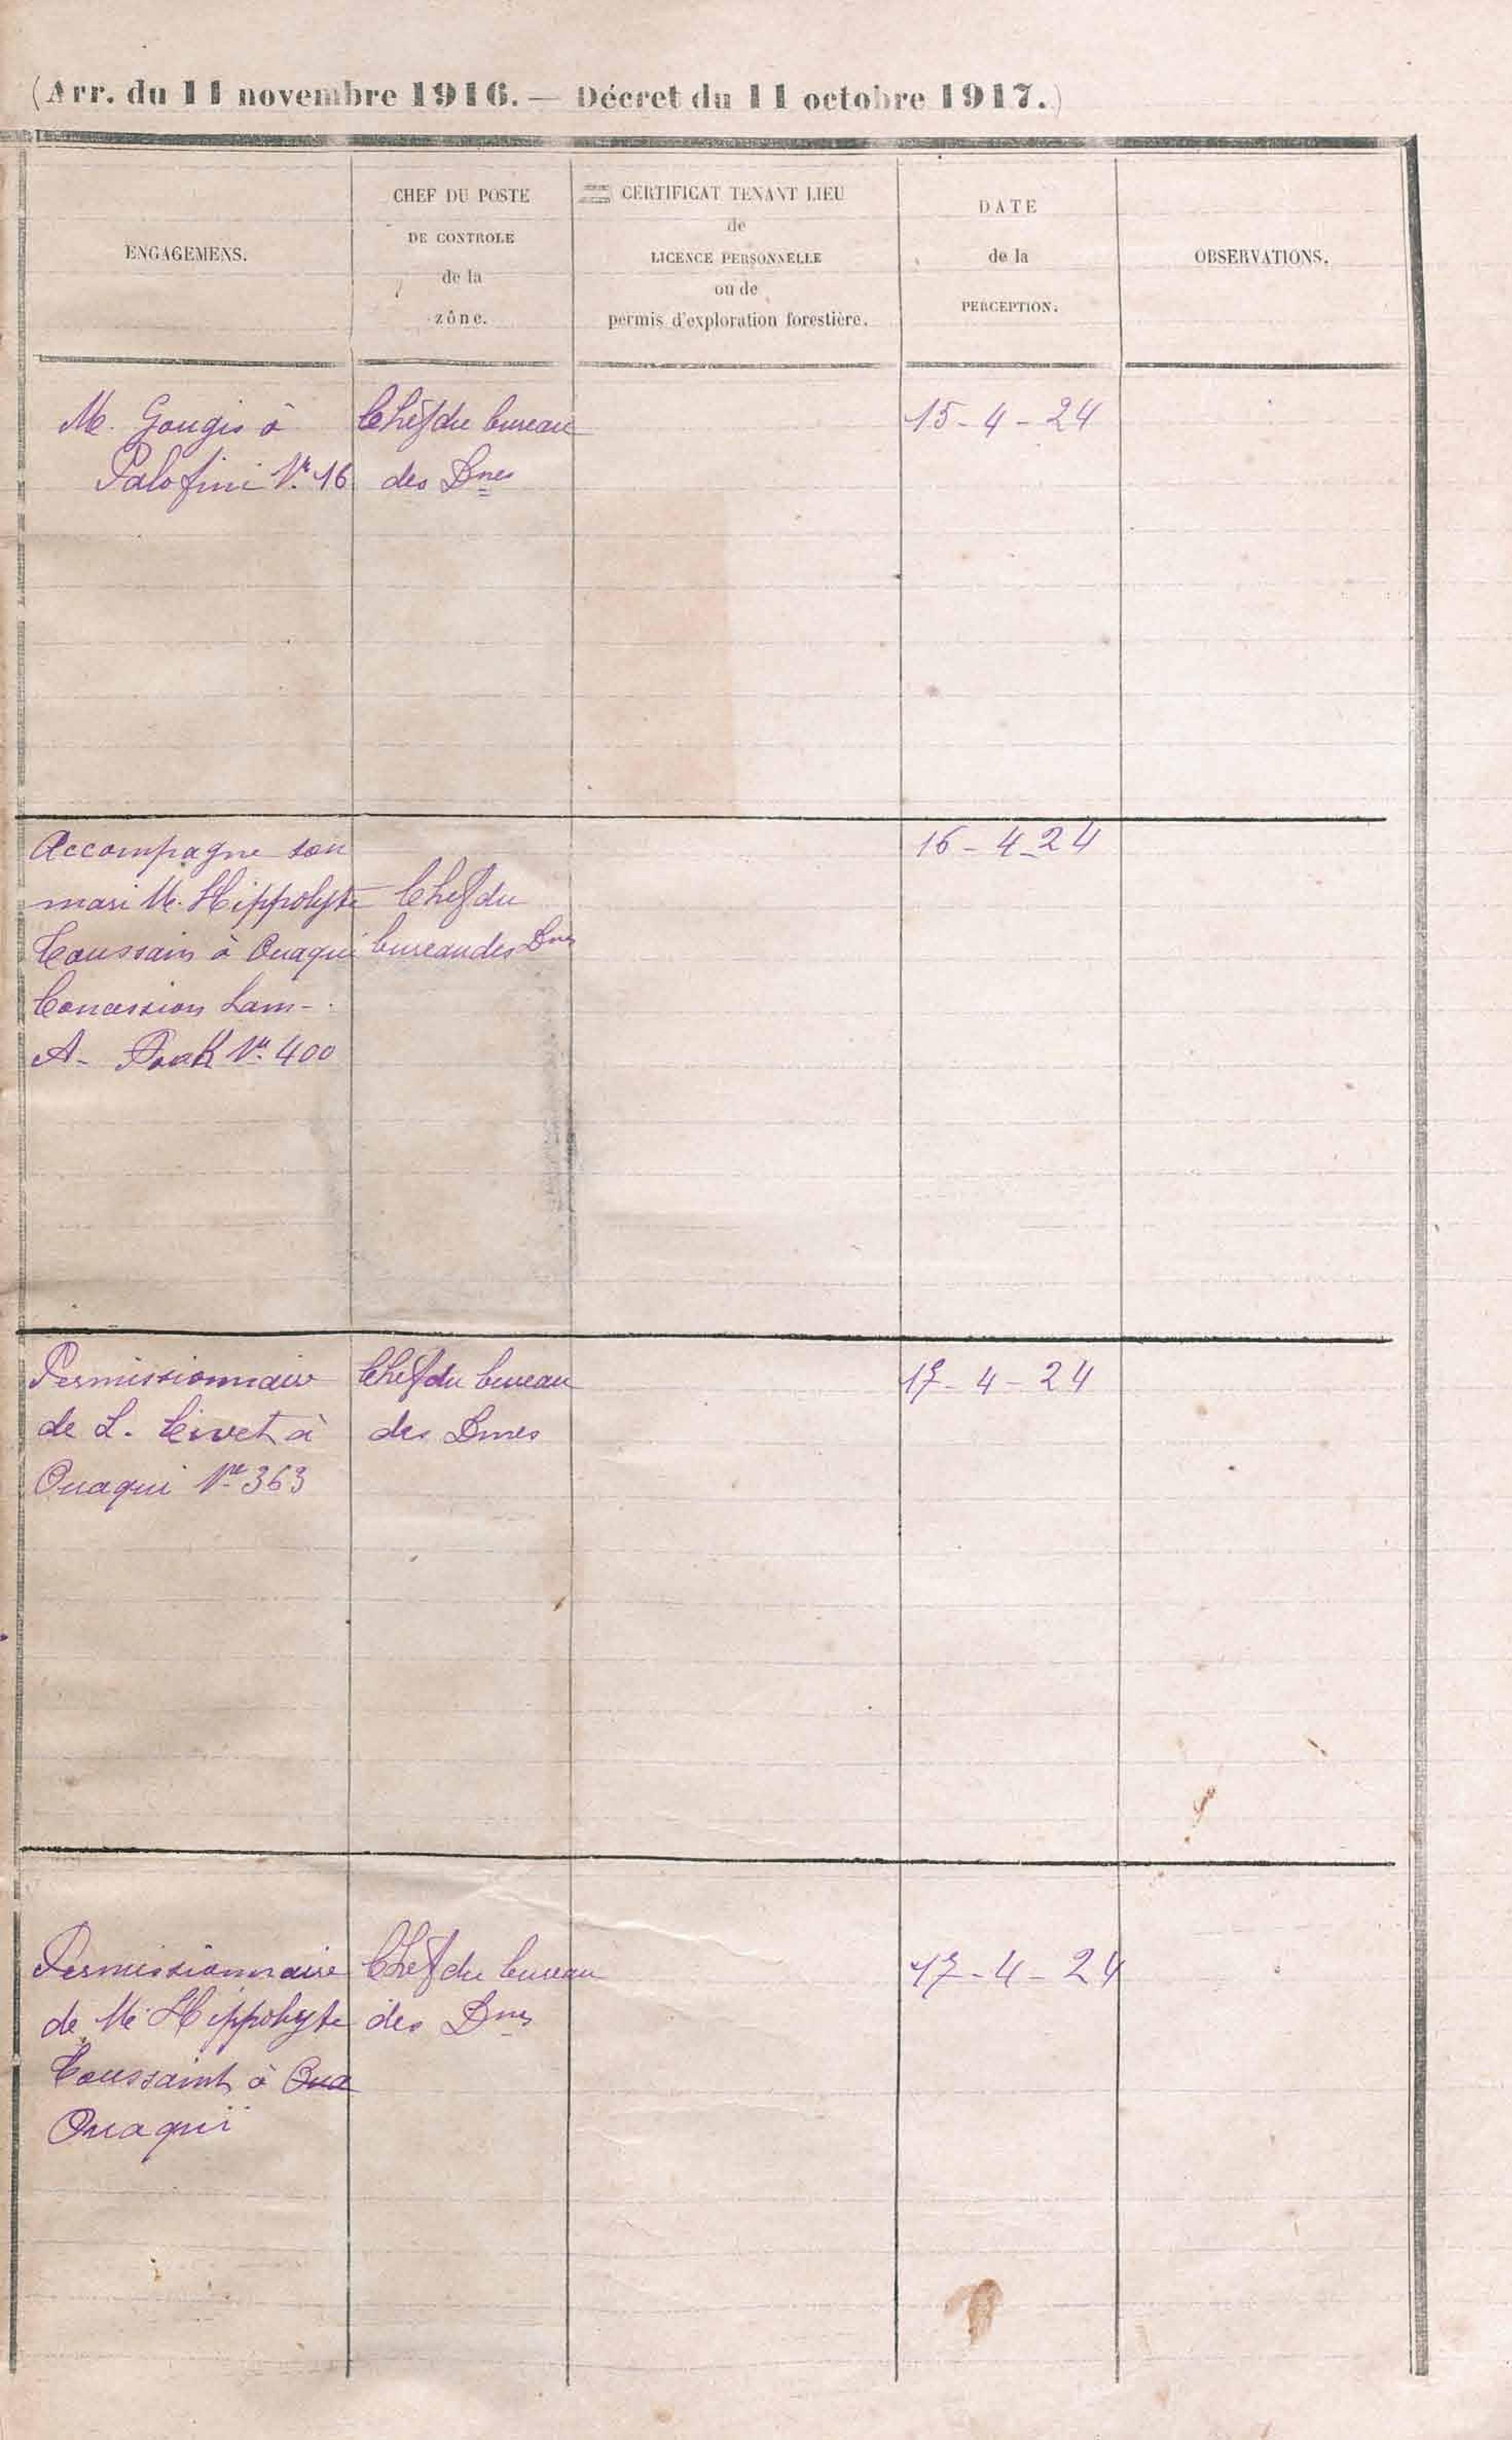 (Arr. du 11 novembre 1916. — Décret du 11 octobre 1917.)
ENGAGEMENS.
CHEF DU POSTE
DE CONTROLE
de la
zône.
CERTIFICAT TENANT LIEU
de
LICENCE PERSONNELLE
ou de
permis d'exploration forestière.
DATE
de la
PERCEPTION.
OBSERVATIONS.
M. Gougis à
Palofini Nº 16
Chef du bureau
des Dnes
15-4-24
Accompagne son
mari M. Hippolyte
Toussain à Ouaqui
Concession Lam-
A- Nº 400
Chef du
bureau des Dnes
16-4-24
Permissionnaire
de L. à
Ouaqui Nº 363
Chef du bureau
des Dnes
17-4-24
Permissionnaire
de M. Hippolyte
Toussaint à Oua
Ouaquï
Chef du bureau
des Dnes
17-4-24